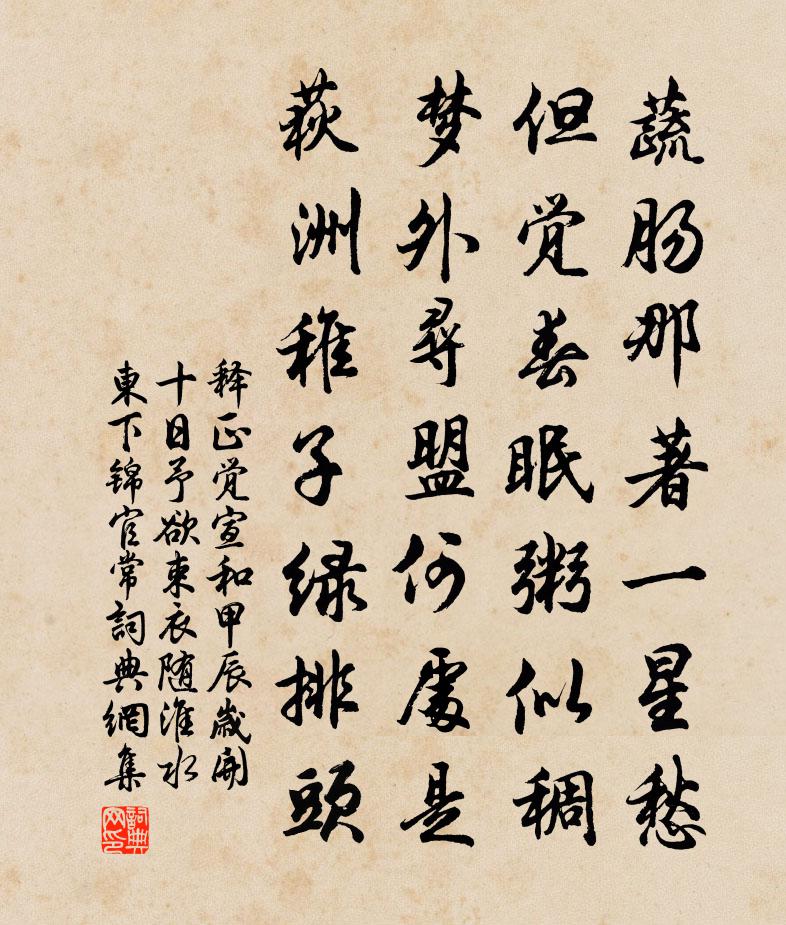 蔬肠那著一星愁
但觉春眠粥似稠
梦外寻盟何處是
萩洲稚子绿排頭
释正觉宣和甲辰歲開
十日予欲東衣随淮水
東下锦官常詞典網集
詞典网印